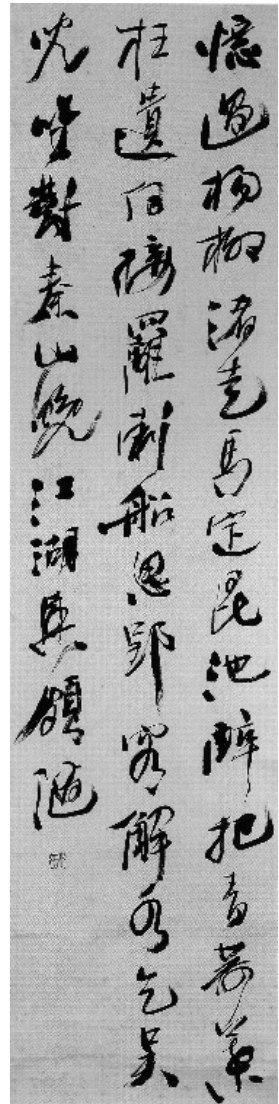 憶過楊柳渚走馬定昆池醉把青荷葉
狂遺白接䍦刺船思郢客解水乞吳
兒坐對秦山晚江湖興頗隨